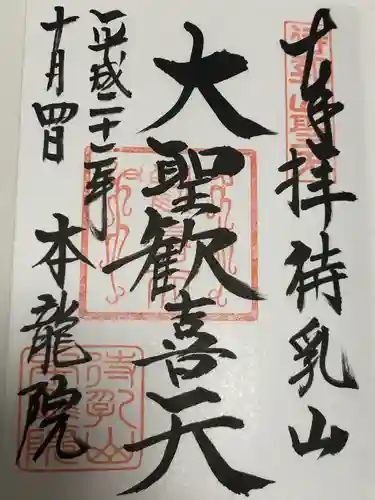 奉拝 待乳山
大聖歓喜天
平成二十二年
十月四日
本龍院
待乳山